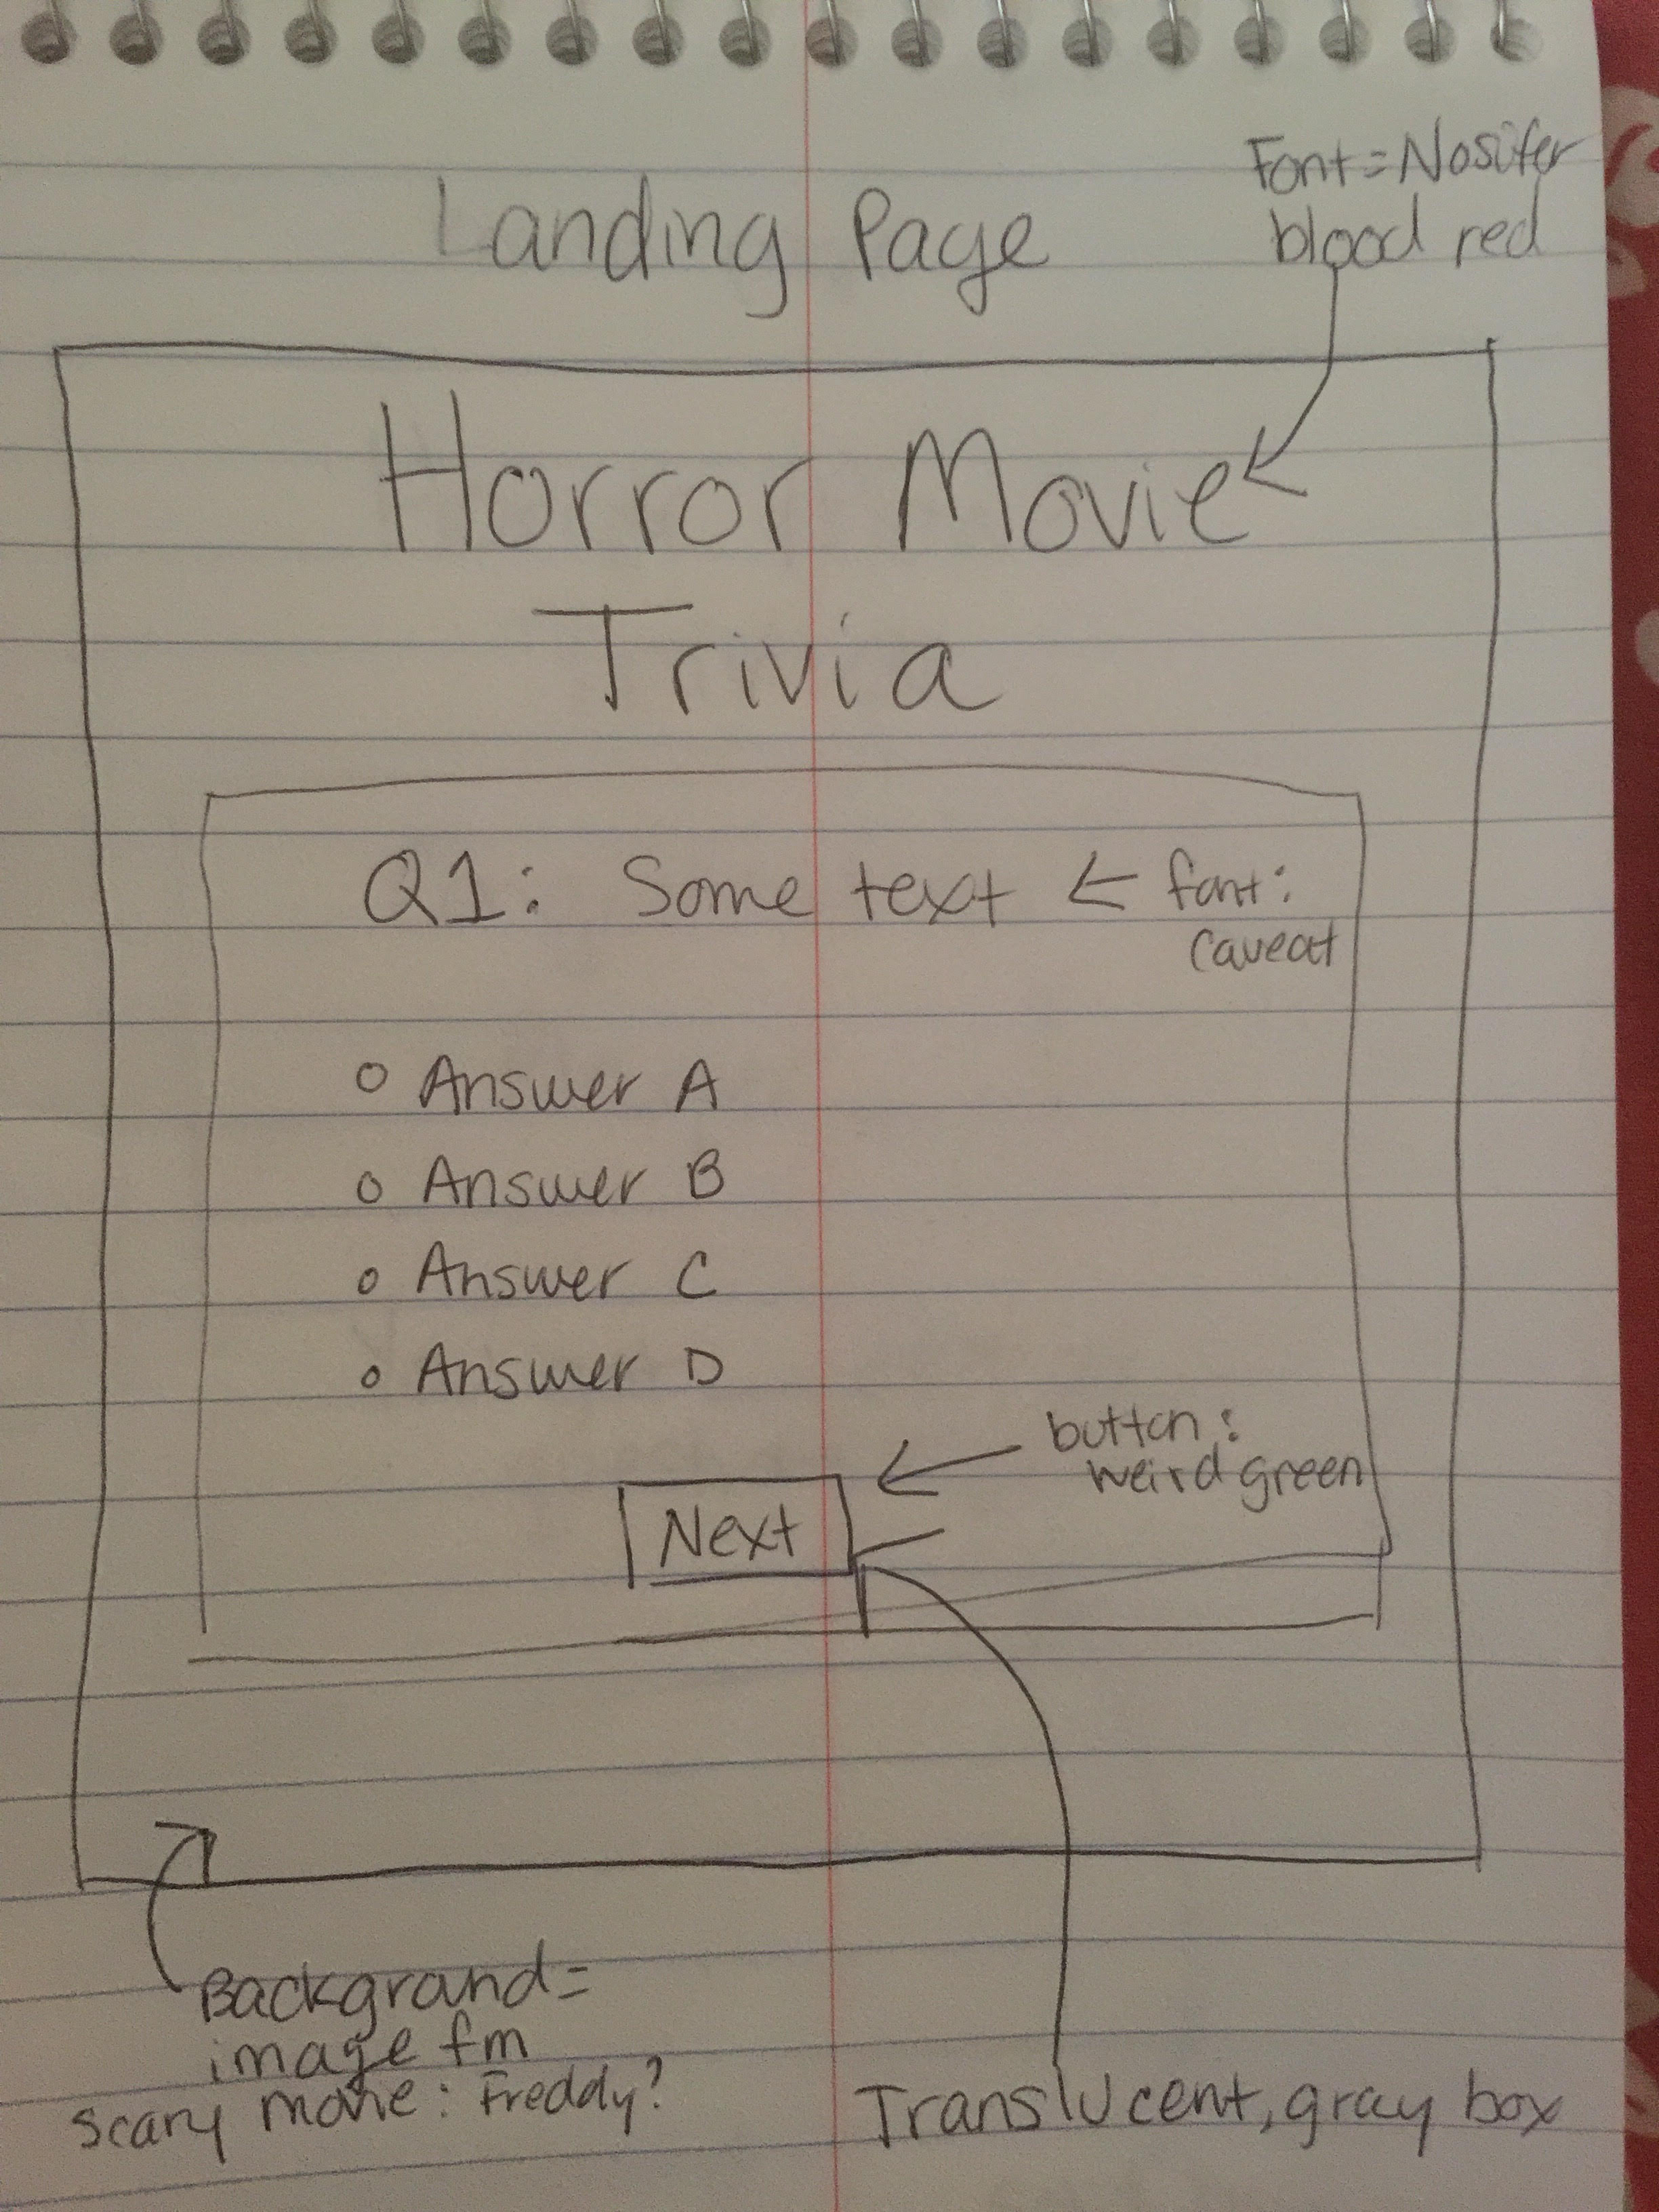 Font=Nosifer
blood red
Landing Page
Horror Movie
Trivia
Q1: Some text
font:
caveat
Answer A
Answer B
Answer C
Answer D
button:
weird green
Next
Background=
image fm
scary movie: Freddy?
Translucent, gray box